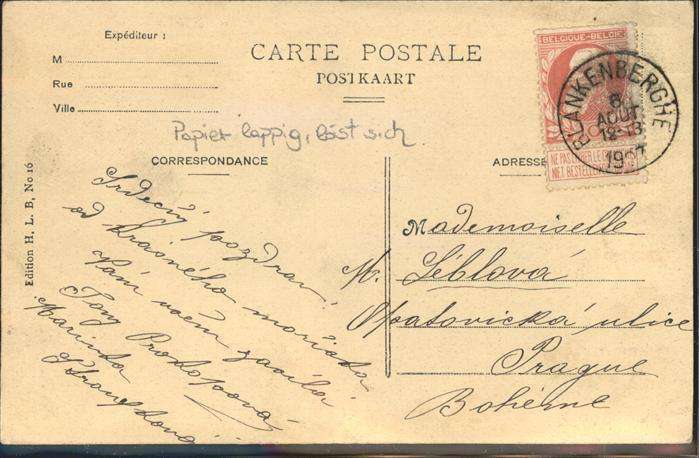 Expéditeur :
M
Rue
Ville
CARTE POSTALE
POSTKAART
Papier lappig, löst sich
CORRESPONDANCE
ADRESSE
Edition H. L. B, No 16
BELGIQUE-BELGIË
BLANKENBERGHE
8
AOUT
12-13
1907
NE PAS
NIET BESTELLEN
Srdečný pozdrav
od krásného mořička
Vám všem zasílá
Tony Prokopová
Marinka
Mademoiselle
M. Léblová
Opatovická ulice
Prague
Bohême